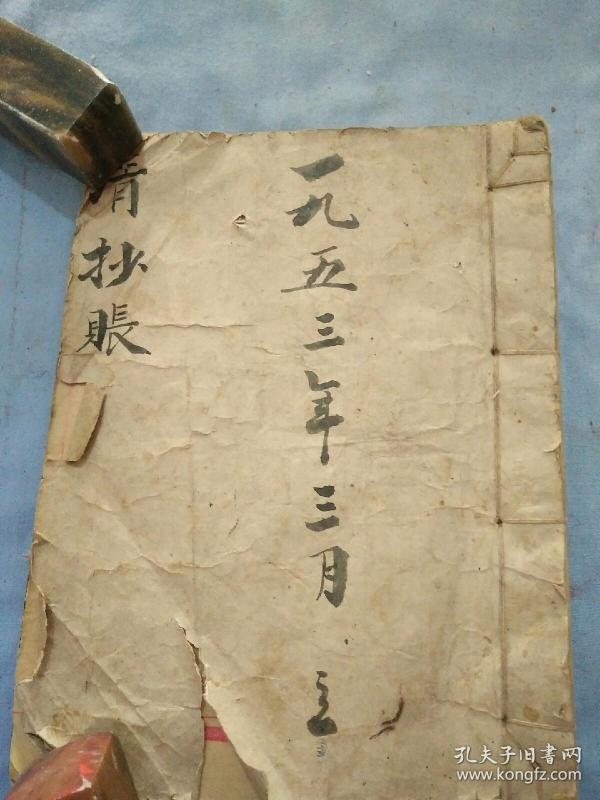 一九五三年三月 立
清抄賬
孔夫子旧书网
www.kongfz.com